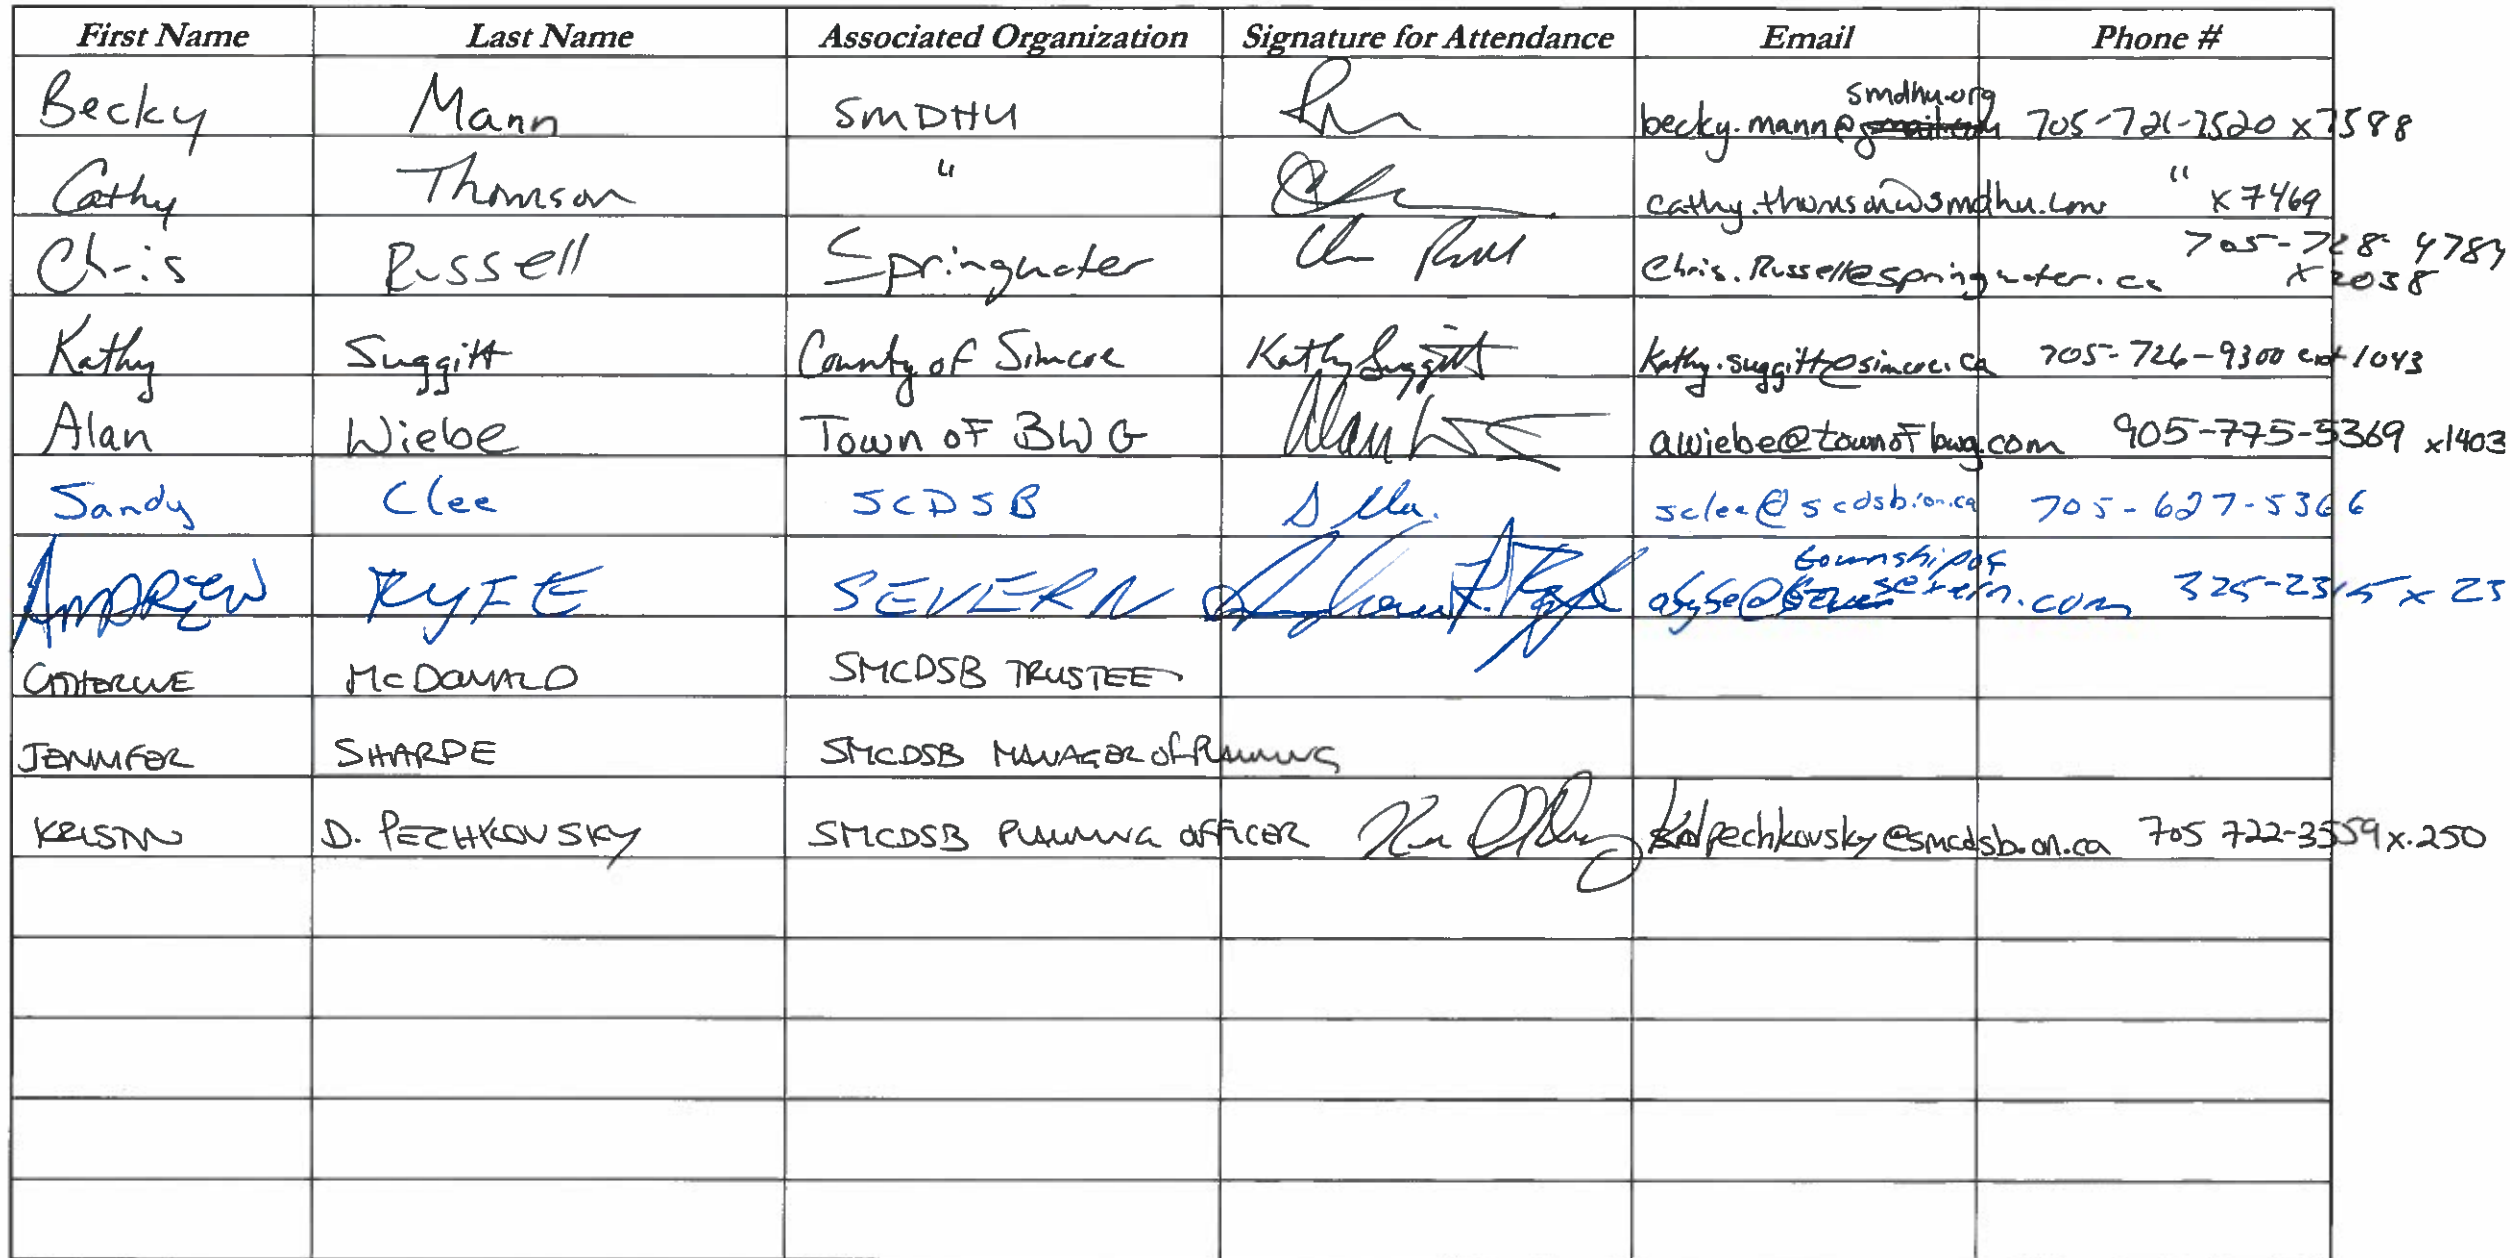 First Name Last Name Associated Organization Signature for Attendance Email Phone #
smdhu.org
Becky Mann SMDHU becky.mann@ 705-721-7520 x7588
Cathy Thomson " cathy.thomson@smdhu.com " x7469
705-728-4784
Chris Russell Springwater Chris.Russell@springwater.ca x2038
Kathy Suggitt County of Simcoe Kathy Suggitt Kathy.suggitt@simcoe.ca 705-726-9300 ext 1043
Alan Wiebe Town of BWG awiebe@townofbwg.com 905-775-5369 x1403
Sandy Clee SCDSB sclee@scdsb.on.ca 705-627-5366
townshipof
ANDREW FYFE SEVERN afyfe@severn.com 325-2315 x 23
CATHERINE McDONALD SMCDSB TRUSTEE
JENNIFER SHARPE SMCDSB MANAGER of PLANNING
KRISTIN D. PECHKOVSKY SMCDSB PLANNING OFFICER kdpechkovsky@smcdsb.on.ca 705 722-3559 x.250